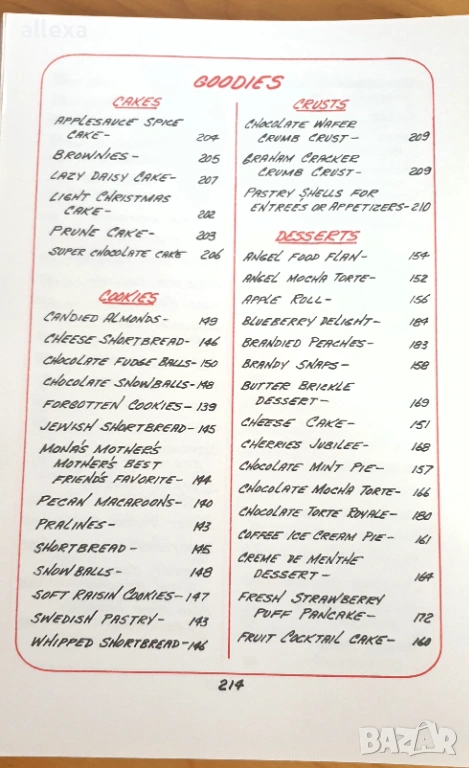 allexa
GOODIES
CAKES
APPLESAUCE SPICE
CAKE- 204
BROWNIES- 205
LAZY DAISY CAKE- 207
LIGHT CHRISTMAS
CAKE- 202
PRUNE CAKE- 203
SUPER CHOCOLATE CAKE 206
COOKIES
CANDIED ALMONDS- 149
CHEESE SHORTBREAD- 146
CHOCOLATE FUDGE BALLS- 150
CHOCOLATE SNOWBALLS- 148
FORGOTTEN COOKIES- 139
JEWISH SHORTBREAD- 145
MONA'S MOTHER'S
MOTHER'S BEST
FRIEND'S FAVORITE- 144
PECAN MACAROONS- 140
PRALINES- 143
SHORTBREAD- 145
SNOWBALLS- 148
SOFT RAISIN COOKIES- 147
SWEDISH PASTRY- 143
WHIPPED SHORTBREAD- 146
CRUSTS
CHOCOLATE WAFER
CRUMB CRUST- 209
GRAHAM CRACKER
CRUMB CRUST- 209
PASTRY SHELLS FOR
ENTREÉS OR APPETIZERS- 210
DESSERTS
ANGEL FOOD FLAN- 154
ANGEL MOCHA TORTE- 152
APPLE ROLL- 156
BLUEBERRY DELIGHT- 184
BRANDIED PEACHES- 183
BRANDY SNAPS- 158
BUTTER BRICKLE
DESSERT- 169
CHEESE CAKE- 151
CHERRIES JUBILEE- 168
CHOCOLATE MINT PIE- 157
CHOCOLATE MOCHA TORTE- 166
CHOCOLATE TORTE ROYALE- 180
COFFEE ICE CREAM PIE- 161
CREME DE MENTHE
DESSERT- 164
FRESH STRAWBERRY
PUFF PANCAKE- 172
FRUIT COCKTAIL CAKE- 160
214
BAZAR.bg